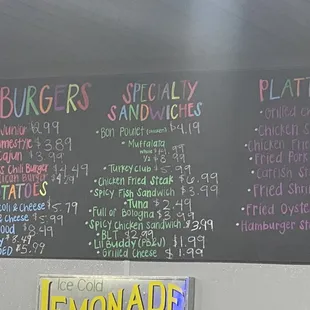 BURGERS
Junior $2.99
mestyle $3.89
Cajun $3.99
s Chili Burger $4.49
Burger $4.29
TATOES
oli & Cheese $5.79
& Cheese $5.99
ood $8.99
$3.49
ED $5.99
SPECIALTY
SANDWICHES
• Bon Poulet $4.19
• Muffalata
Whole
1/2 8.99
• Turkey club $5.99
• Chicken Fried Steak $6.99
• Spicy Fish Sandwich $3.99
• Tuna $2.49
• Full of Bologna $3.99
• Spicy Chicken Sandwich $3.99
• BLT $2.99
• Lil Buddy (PB&J) $1.99
• Grilled Cheese $1.99
PLATT
• Grilled c
• Chicken S
• Chicken Frie
• Fried Pork
• Catfish St
• Fried Shri
• Fried Oyste
• Hamburger Stea
Ice Cold
LEMONADE